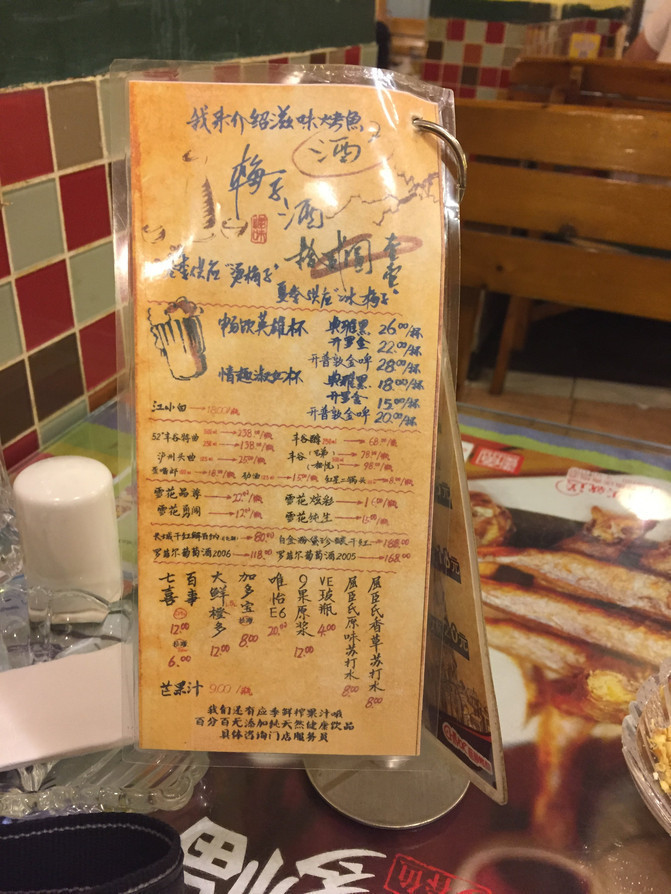 我来介绍滋味烤鱼
酒
梅子酒
夏季供应"冰梅子"
畅饮英雄杯
典雅黑 26.00/杯
开罗金 22.00/杯
开普敦金啤 28.00/杯
情趣淑女杯
典雅黑 18.00/杯
开罗金 15.00/杯
开普敦金啤 20.00/杯
江小白
52°丰谷特曲 238.00/瓶
138.00/瓶
丰谷 68.00/瓶
泸州头曲
丰谷 78.00/瓶
98.00/瓶
歪嘴郎 18.00/瓶
劲酒 15.00/瓶
红星二锅头
雪花品尊 22.00/瓶
雪花炫彩
雪花勇闯 12.00/瓶
雪花纯生
长城干红解百纳 80.00
白金粉案珍酿干红 188.00
罗莎尔葡萄酒2006 118.00
罗莎尔葡萄酒2005 168.00
七喜
百事
12.00
6.00
大鲜橙多 12.00
加多宝 8.00
唯怡E6 20.00
9果原浆 12.00
VE玻瓶 4.00
屈臣氏原味苏打水 8.00
屈臣氏香草苏打水 8.00
芒果汁
我们还有应季鲜榨果汁哦
百分百无添加纯天然健康饮品
具体咨询门店服务员